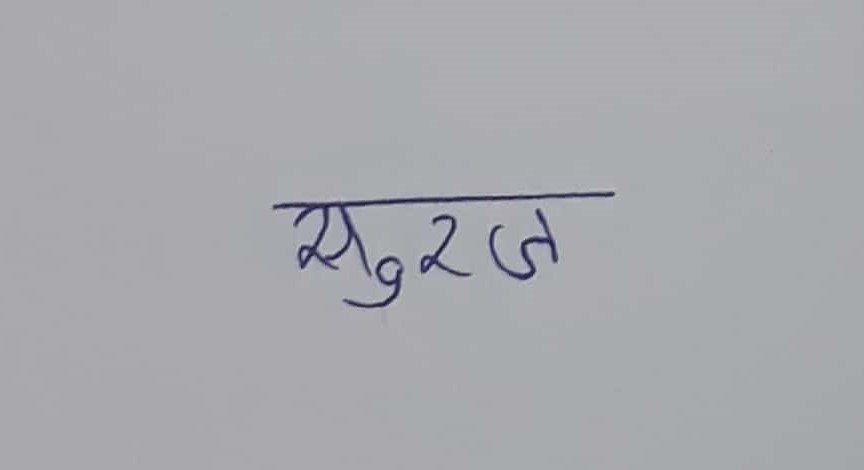 सुरज